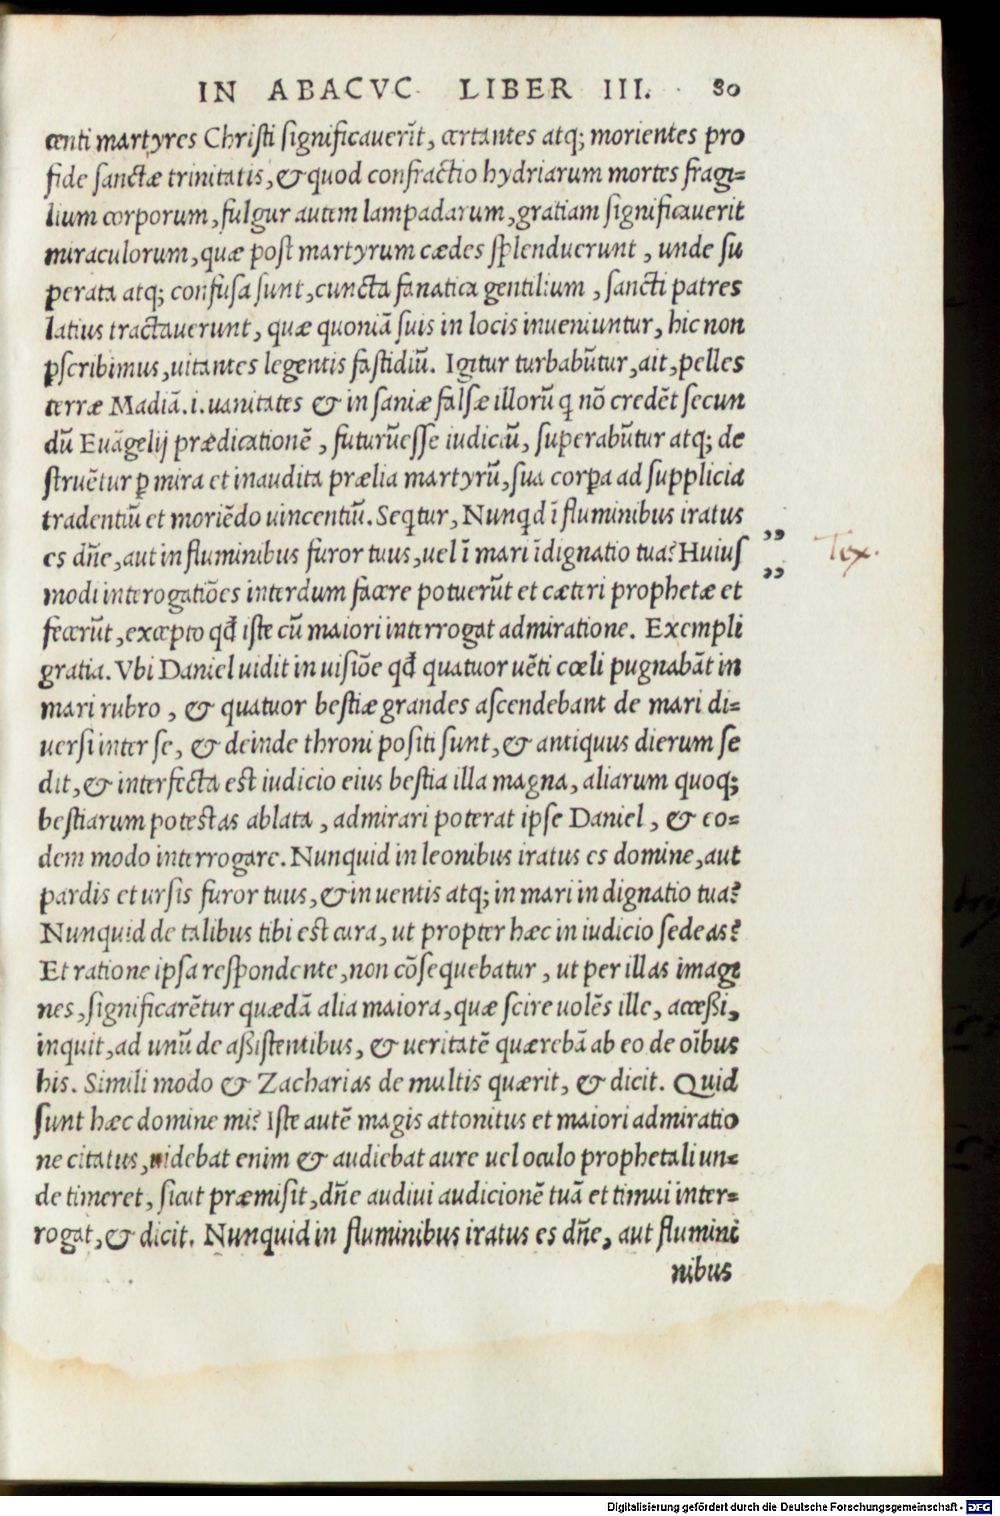 IN ABACVC LIBER III. 80
centi martyres Christi significauerĩt, certantes atq; morientes pro
fide sanctæ trinitatis, & quod confractio hydriarum mortes fragi=
lium corporum, fulgur autem lampadarum, gratiam significauerit
miraculorum, quæ post martyrum cædes splenduerunt, unde su
perata atq; confusa sunt, cuncta fanatica gentilium, sancti patres
latius tractauerunt, quæ quoniã suis in locis inueniuntur, hic non
ꝑscribimus, uitantes legentis fastidiũ. Igitur turbabũtur, ait, pelles
terræ Madiã. i. uanitates & in saniæ falsæ illorũ q nõ credẽt secun
dũ Euãgelij prædicationẽ, futurũesse iudiciũ, superabũtur atq; de
struẽtur ꝑ mira et inaudita prælia martyrũ, sua corꝑa ad supplicia
tradentiũ et moriẽdo uincentiũ. Seqtur, Nunqd ĩ fluminibus iratus
es dñe, aut in fluminibus furor tuus, uel ĩ mari ĩdignatio tua? Huius
„ Tex.
„
modi interogatiões interdum facere potuerũt et cæteri prophetæ et
fecerũt, excepto qđ iste cũ maiori interrogat admiratione. Exempli
gratia. Vbi Daniel uidit in uisiõe qđ quatuor uẽti cœli pugnabãt in
mari rubro, & quatuor bestiæ grandes ascendebant de mari di=
uersi inter se, & deinde throni positi sunt, & antiquus dierum se
dit, & interfecta est iudicio eius bestia illa magna, aliarum quoq;
bestiarum potestas ablata, admirari poterat ipse Daniel, & eo=
dem modo interrogare. Nunquid in leonibus iratus es domine, aut
pardis et ursis furor tuus, & in uentis atq; in mari in dignatio tua?
Nunquid de talibus tibi est cura, ut propter hæc in iudicio sedeas?
Et ratione ipsa respondente, non cõsequebatur, ut per illas imagi
nes, significarẽtur quædã alia maiora, quæ scire uolẽs ille, accessi,
inquit, ad unũ de assistentibus, & ueritatẽ quærebã ab eo de oĩbus
his. Simili modo & Zacharias de multis quærit, & dicit. Quid
sunt hæc domine mi? Iste autẽ magis attonitus et maiori admiratio
ne citatus, uidebat enim & audiebat aure uel oculo prophetali un=
de timeret, sicut præmisit, dñe audiui audicionẽ tuã et timui inter=
rogat, & dicit. Nunquid in fluminibus iratus es dñe, aut flumini
nibus
Digitalisierung gefördert durch die Deutsche Forschungsgemeinschaft - DFG